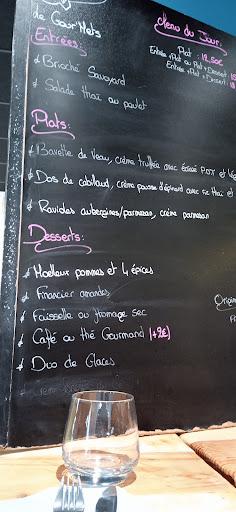 de Gour'Mets
Menu du Jour:
Entrées
Plat: 12.50€
Entrée + Plat ou Plat + Dessert:
Entrée + Plat + Dessert:
Brioché Savoyard
Salade thaï au poulet
Plats:
Bavette de Veau, crème truffée avec écrasé P.D.T et
Dos de cabillaud, crème pousse d'épinard avec riz thaï et
Ravioles aubergines/parmesan, crème parmesan
Desserts:
Moelleux pommes et 4 épices
Financier amandes
Faisselle ou fromage sec
Café ou thé Gourmand (+2€)
Duo de Glaces